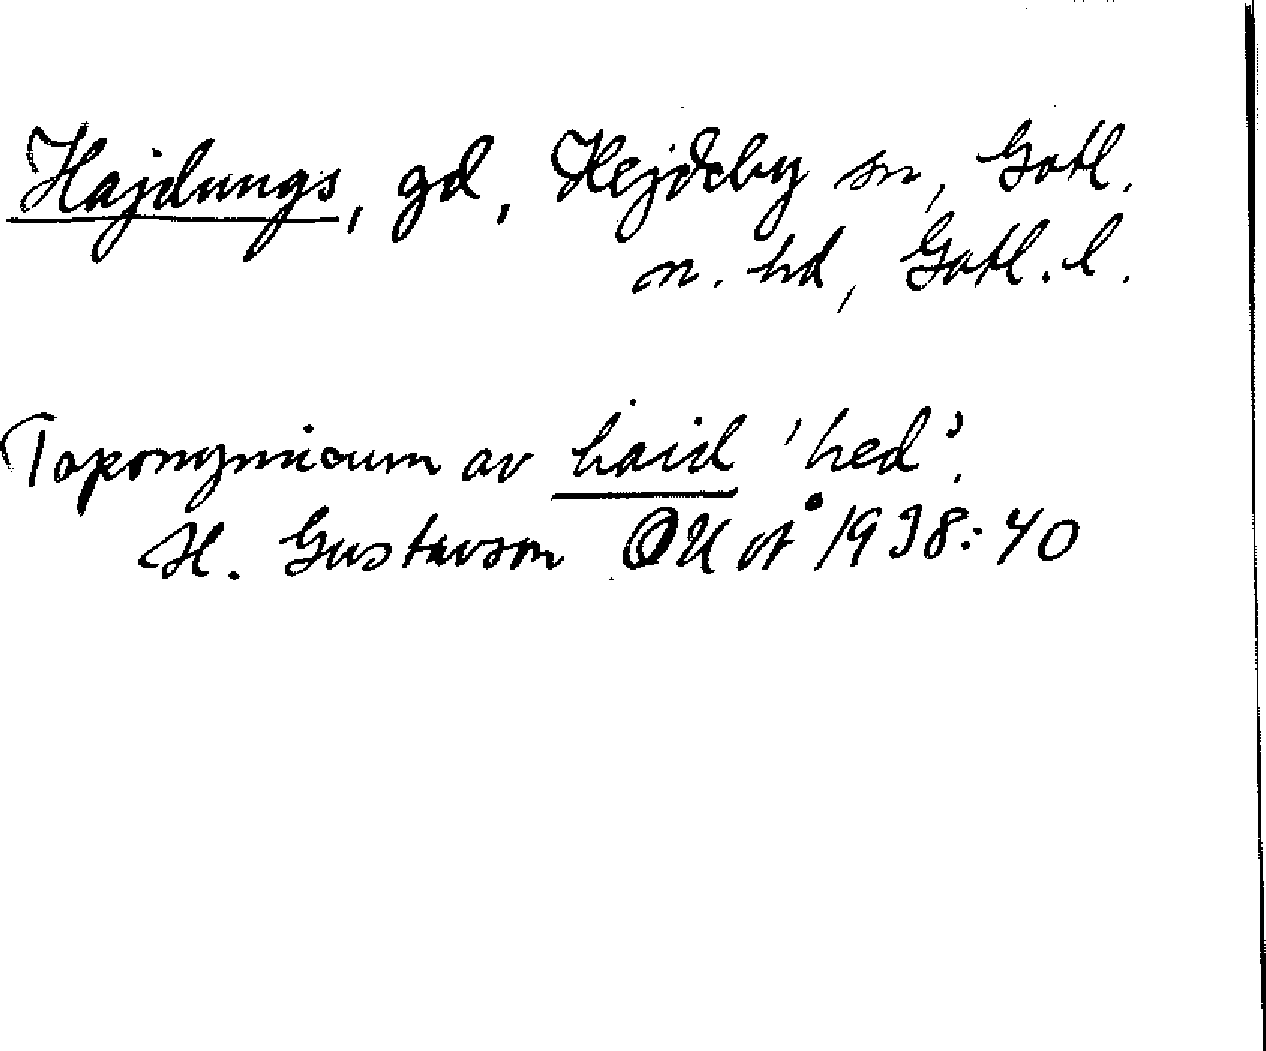 Hajdungs, gd, Hejdeby sn, Gotl.
n. hd, Gotl. l.
Toponymicum av haid 'hed'.
H. Gustavson 1938:40